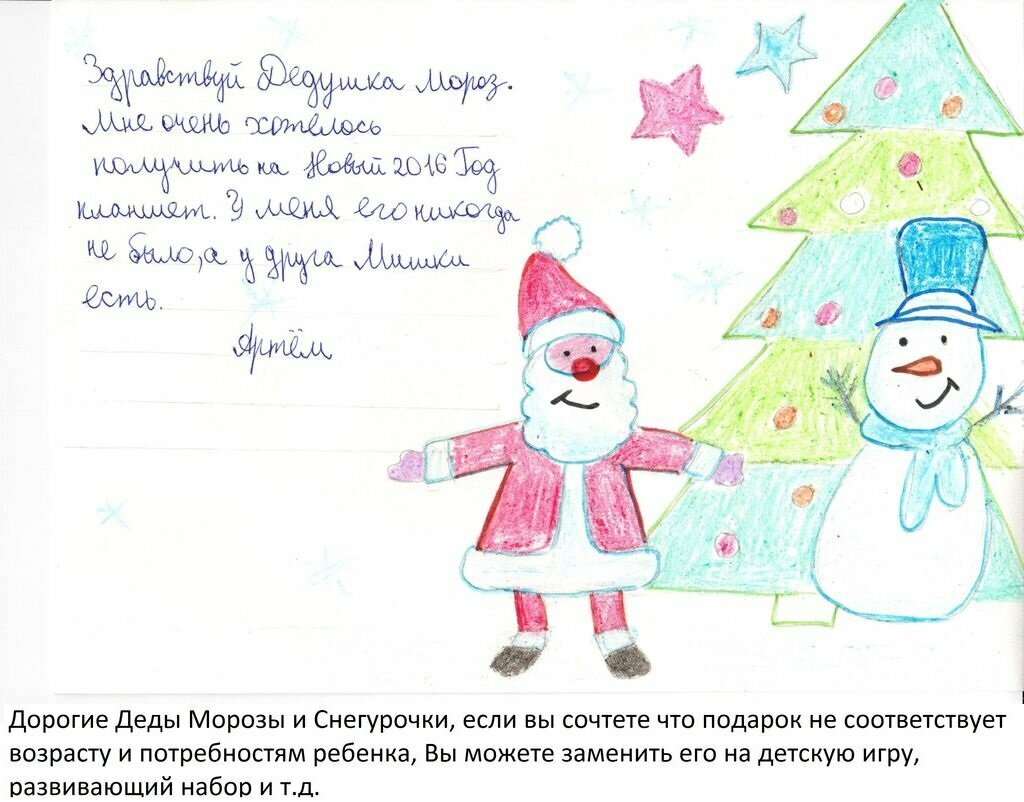 Здравствуй Дедушка Мороз.
Мне очень хотелось
получить на Новый 2016 Год
планшет. У меня его никогда
не было, а у друга Мишки
есть.
Артём
Дорогие Деды Морозы и Снегурочки, если вы сочтете что подарок не соответствует
возрасту и потребностям ребенка, Вы можете заменить его на детскую игру,
развивающий набор и т.д.